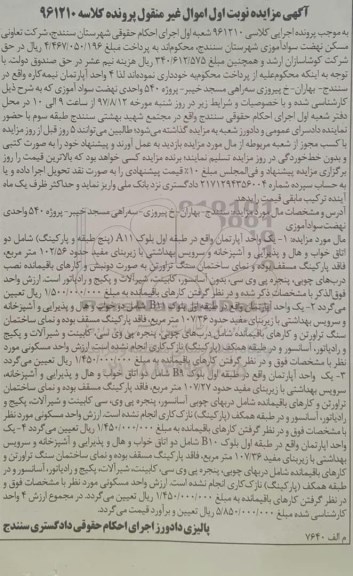 آگهی مزایده نوبت اول اموال غیر منقول پرونده کلاسه ۹۶۱۲۱۰
به موجب پرونده اجرایی کلاسی ۹۶۱۲۱۰ شعبه اول اجرای احکام حقوقی شهرستان سنندج، شرکت تعاونی
مسکن نهضت سوادآموزی شهرستان سنندج، محکوم‌اند به پرداخت مبلغ ۴/۴۶۷/۰۵۰/۱۹۶ ریال در حق
شرکت کوشاسازان ارشد و همچنین مبلغ ۳۴۰/۶۱۲/۵۷۵ ریال هزینه نیم عشر در حق صندوق دولت با
توجه به اینکه محکوم‌علیه از پرداخت محکوم‌به خودداری نموده‌اند لذا ۴ واحد آپارتمان نیمه‌کاره واقع در
سنندج- بهاران- خ پیروزی سه‌راهی مسجد خیبر- پروژه ۵۴۰ واحدی نهضت سواد آموزی که به شرح ذیل
کارشناسی شده و با خصوصیات و شرایط زیر در روز شنبه مورخه ۹۷/۸/۱۲ از ساعت ۹ الی ۱۰ در محل
دفتر شعبه اول اجرای احکام حقوقی سنندج واقع در مجتمع شهید بهشتی سنندج طبقه سوم با حضور
نماینده دادسرای عمومی و دادورز شعبه به مزایده گذاشته می‌شود؛ طالبین می‌توانند ۵ روز قبل از روز مزایده
با کسب مجوز از شعبه مربوطه از مال مورد مزایده بازدید به عمل آورند و پیشنهاد خود را به صورت کتبی
و بدون خط‌خوردگی در روز مزایده تسلیم نمایند؛ برنده مزایده کسی خواهد بود که بالاترین قیمت را روز
برگزاری مزایده پیشنهاد و فی‌المجلس مبلغ ۱۰٪ قیمت پیشنهادی را به صورت نقد تحویل اجرا داده و یا
به حساب سپرده شماره ۲۱۷۱۲۹۴۳۵۶۰۰۴ دادگستری نزد بانک ملی واریز نماید و حداکثر ظرف یک ماه
آینده ترکیب مابقی قیمت را بدهد.
آدرس و مشخصات مال مورد مزایده سنندج- بهاران- خ پیروزی- سه‌راهی مسجد خیبر- پروژه ۵۴۰ واحدی
نهضت سوادآموزی
مال مورد مزایده: ۱- یک واحد آپارتمان واقع در طبقه اول بلوک A11 (پنج طبقه و پارکینگ) شامل دو
اتاق خواب و هال و پذیرایی و آشپزخانه و سرویس بهداشتی با زیربنای مفید حدود ۱۰۲/۵۶ متر مربع،
فاقد پارکینگ مسقف بوده و نمای ساختمان سنگ تراورتن
درب‌های چوبی، پنجره پی وی سی، بدون آسانسور، کابینت، شیرآلات و پکیج و رادیاتور است. ارزش واحد
فوق‌الذکر با مشخصات ذکر شده و در نظر گرفتن کارهای باقیمانده به مبلغ ۱/۵۰۰/۰۰۰/۰۰۰ ریال تعیین
می‌گردد ۲- یک واحد آپارتمان واقع در طبقه اول بلوک B11 شامل دو خواب و هال و پذیرایی و آشپزخانه
و سرویس بهداشتی با زیربنای مفید حدود ۱۰۷/۳۶ متر مربع، فاقد پارکینگ مسقف بوده و نمای ساختمان
سنگ تراورتن و کارهای باقیمانده شامل درب‌های چوبی، پنجره پی وی سی، کابینت و شیرآلات و پکیج
و رادیاتور، آسانسور و در طبقه همکف (پارکینگ) نازک‌کاری انجام نشده است. ارزش واحد مسکونی مورد
نظر با مشخصات فوق و در نظر گرفتن کارهای باقیمانده به مبلغ ۱/۴۵۰/۰۰۰/۰۰۰ ریال تعیین می‌گردد
۳- یک واحد آپارتمان واقع در طبقه اول بلوک B8 شامل دو اتاق خواب و هال و پذیرایی و آشپزخانه،
سرویس بهداشتی با زیربنای مفید حدود ۱۰۷/۲۷ متر مربع، فاقد پارکینگ مسقف بوده و نمای ساختمان
تراورتن و کارهای باقیمانده شامل درب‌های چوبی آسانسور، پنجره پی وی سی کابینت و شیرآلات، پکیج و
رادیاتور، آسانسور و در طبقه همکف (پارکینگ) نازک‌کاری انجام نشده است. ارزش واحد مسکونی مورد نظر
با مشخصات فوق و در نظر گرفتن کارهای باقیمانده به مبلغ ۱/۴۵۰/۰۰۰/۰۰۰ ریال تعیین می‌گردد ۴- یک
واحد آپارتمان واقع در طبقه اول بلوک B10 شامل دو اتاق خواب و هال و پذیرایی و آشپزخانه و سرویس
بهداشتی با زیربنای مفید ۱۰۷/۳۶ متر مربع، فاقد پارکینگ مسقف بوده و نمای ساختمان سنگ تراورتن و
کارهای باقیمانده شامل درب‌های چوبی، پنجره پی وی سی، کابینت، شیرآلات، پکیج و رادیاتور، آسانسور و در
طبقه همکف (پارکینگ) نازک‌کاری انجام نشده است. ارزش واحد مسکونی مورد نظر با مشخصات فوق و
در نظر گرفتن کارهای باقیمانده به مبلغ ۱/۴۵۰/۰۰۰/۰۰۰ ریال تعیین می‌گردد. در مجموع ارزش ۴ واحد
کارشناسی شده مبلغ ۵/۸۵۰/۰۰۰/۰۰۰ ریال تعیین و برآورد قیمت می‌گردد.
پالیزی دادورز اجرای احکام حقوقی دادگستری سنندج
م الف ۷۶۴۰